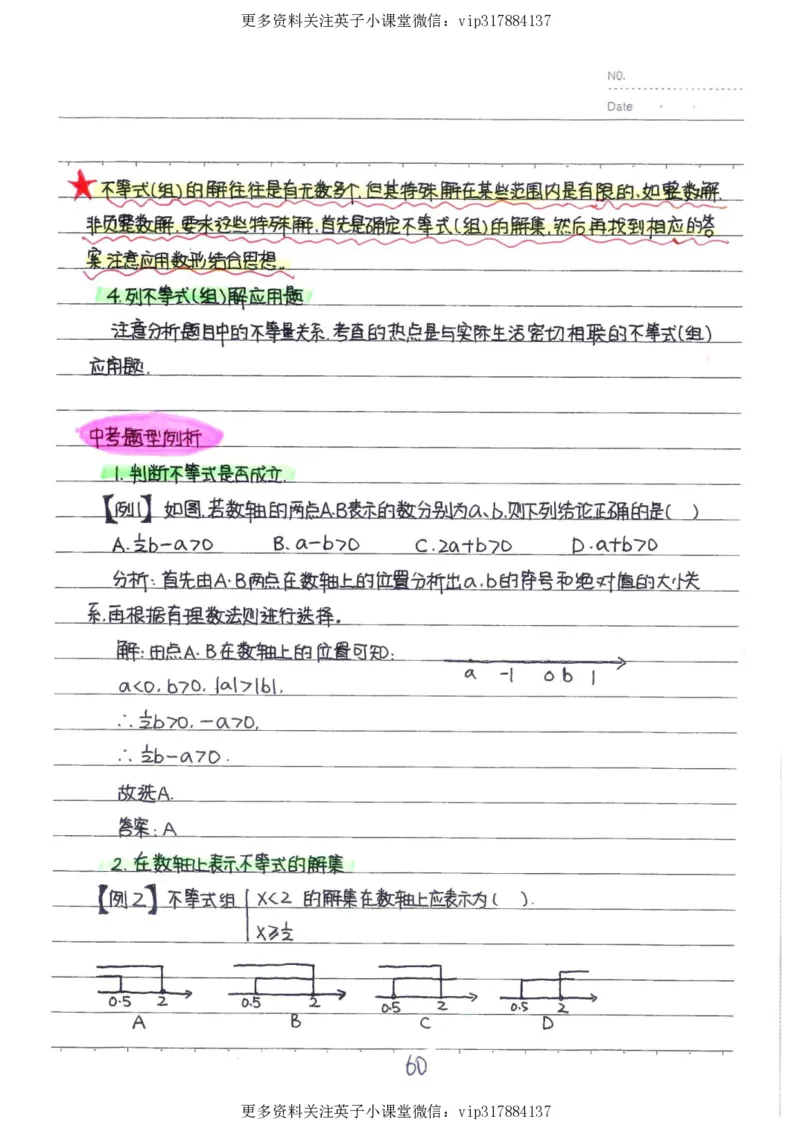 更多资料关注英子小课堂微信：vip317884137
NO.
Date
★不等式(组)的解往往是有无数多个,但其特殊解在某些范围内是有限的,如整数解,
非负整数解,要求这些特殊解,首先是确定不等式(组)的解集,然后再找到相应的答
案.注意应用数形结合思想。
4.列不等式(组)解应用题
注意分析题目中的不等量关系,考查的热点是与实际生活密切相联的不等式(组)
应用题.
中考题型例析
1.判断不等式是否成立.
【例1】如图,若数轴的两点A.B表示的数分别为a、b,则下列结论正确的是( )
A.½b-a>0 B.a-b>0 C.2a+b>0 D.a+b>0
分析:首先由A·B两点在数轴上的位置分析出a.b的符号和绝对值的大小关
系,再根据有理数法则进行选择。
解:由点A·B在数轴上的位置可知:
a -1 0 b 1
a<0,b>0,|a|>|b|,
∴½b>0,-a>0,
∴½b-a>0.
故选A.
答案:A
2.在数轴上表示不等式的解集
【例2】不等式组 x<2 的解集在数轴上应表示为( ).
x≥½
0.5 2 0.5 2 0.5 2 0.5 2
A B C D
60
更多资料关注英子小课堂微信：vip317884137